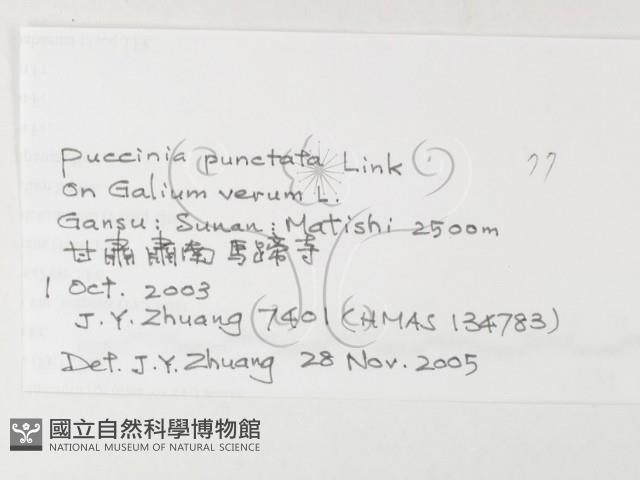 Puccinia punctata Link
77
on Galium verum L.
Gansu: Sunan: Matishi 2500m
甘肅 肅南 馬蹄寺
1 Oct. 2003
J.Y. Zhuang 7401 (HMAS 134783)
Det. J.Y. Zhuang 28 Nov. 2005
國立自然科學博物館
NATIONAL MUSEUM OF NATURAL SCIENCE